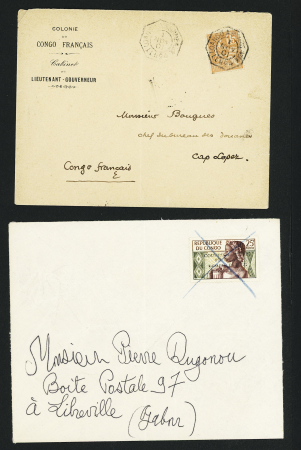 COLONIE
DU
CONGO FRANÇAIS
Cabinet
DU
LIEUTENANT-GOUVERNEUR
Monsieur Bougues
chef du bureau des Douanes
Cap Lopez
Congo français
RÉPUBLIQUE
DU CONGO
25F
Monsieur Pierre Dugonou
Boîte Postale 97
à Libreville
(Gabon)